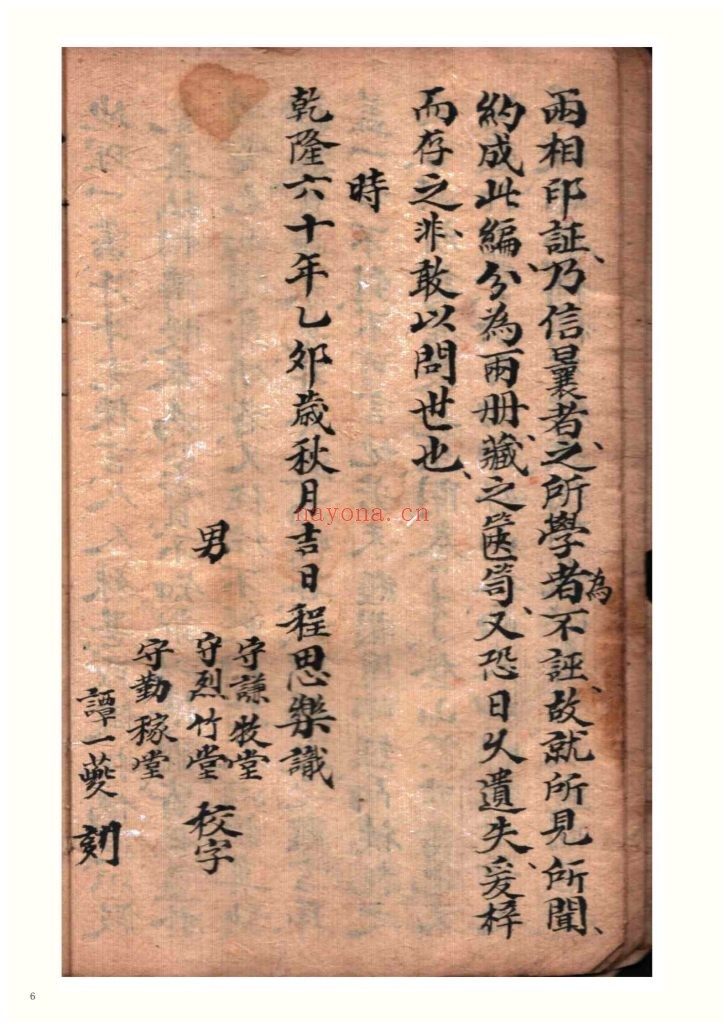 兩相印証、乃信曩者之、所學者為不誣、故就所見所聞、
約成此編、分為兩册、藏之篋笥、又恐日乆遺失、爰梓
而存之、非敢以問世也、
時
乾隆六十年乙夘歲秋月吉日程思樂識
男
守謙牧堂
守烈竹堂 校字
守勤稼堂
譚一夔 刻
nayona.cn
6